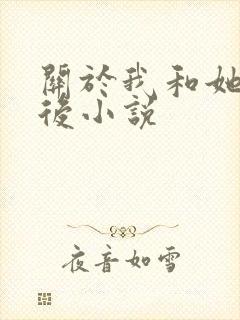 關於我和她
後小說
夜音如雪